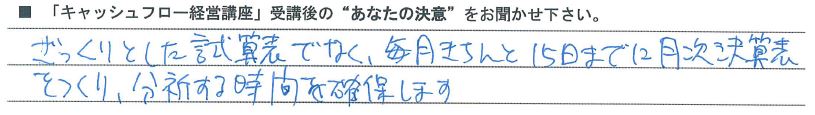 ■ 「キャッシュフロー経営講座」受講後の“あなたの決意”をお聞かせ下さい。
ざっくりとした試算表でなく、毎月きちんと15日までに月次決算表
をつくり、分析する時間を確保します